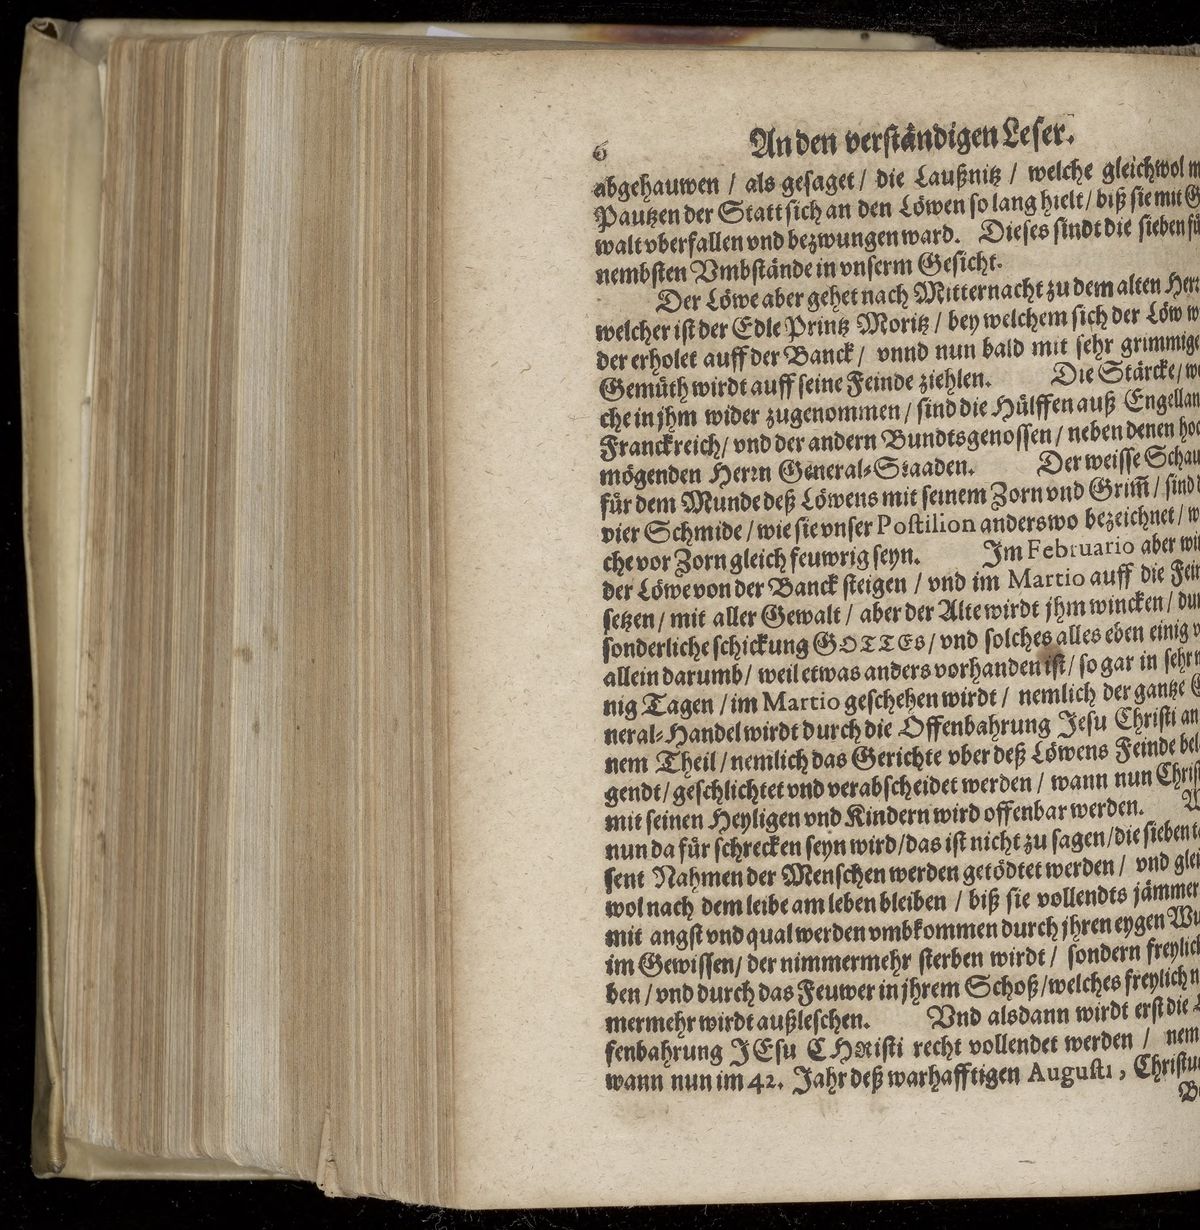 6
An den verständigen Leser.
abgehauwen / als gesaget / die Laußnitz / welche gleichwol
Pautzen der Statt sich an den Löwen so lang hielt / biß sie mit
walt vberfallen vnd bezwungen ward. Dieses sindt die sieben
nembsten Vmbstände in vnserm Gesicht.
Der Löwe aber gehet nach Mitternacht zu dem alten
welcher ist der Edle Printz Moritz / bey welchem sich der Löw
der erholet auff der Banck / vnnd nun bald mit sehr
Gemüth wirdt auff seine Feinde ziehlen. Die Stärcke /
che in jhm wider zugenommen / sind die Hülffen auß
Franckreich / vnd der andern Bundtsgenossen / neben denen
mögenden Herrn General-Staaden. Der weisse
für dem Munde deß Löwens mit seinem Zorn vnd Grim̃ / sind
vier Schmide / wie sie vnser Postilion anderswo bezeichnet /
che vor Zorn gleich feuwrig seyn. Im Februario aber
der Löwe von der Banck steigen / vnd im Martio auff die
setzen / mit aller Gewalt / aber der Alte wirdt jhm wincken /
sonderliche schickung GOTTES / vnd solches alles eben einig
allein darumb / weil etwas anders vorhanden ist / so gar in
nig Tagen / im Martio geschehen wirdt / nemlich der gantze
neral-Handel wirdt durch die Offenbahrung Jesu Christi
nem Theil / nemlich das Gerichte vber deß Löwens Feinde
gendt / geschlichtet vnd verabscheidet werden / wann nun
mit seinen Heyligen vnd Kindern wird offenbar werden.
nun da für schrecken seyn wird / das ist nicht zu sagen / die sieben
sent Nahmen der Menschen werden getödtet werden / vnd
wol nach dem leibe am leben bleiben / biß sie vollendts
mit angst vnd qual werden vmbkommen durch jhren eygen
im Gewissen / der nimmermehr sterben wirdt / sondern
ben / vnd durch das Feuwer in jhrem Schoß / welches freylich
mermehr wirdt außleschen. Vnd alsdann wirdt erst die
fenbahrung JEsu CHRisti recht vollendet werden /
wann nun im 42. Jahr deß warhafftigen Augusti,